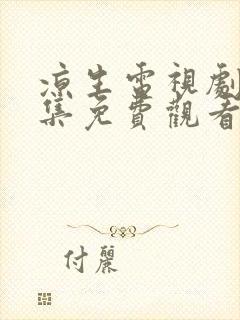 凉生電視劇
集免費觀看
付麗